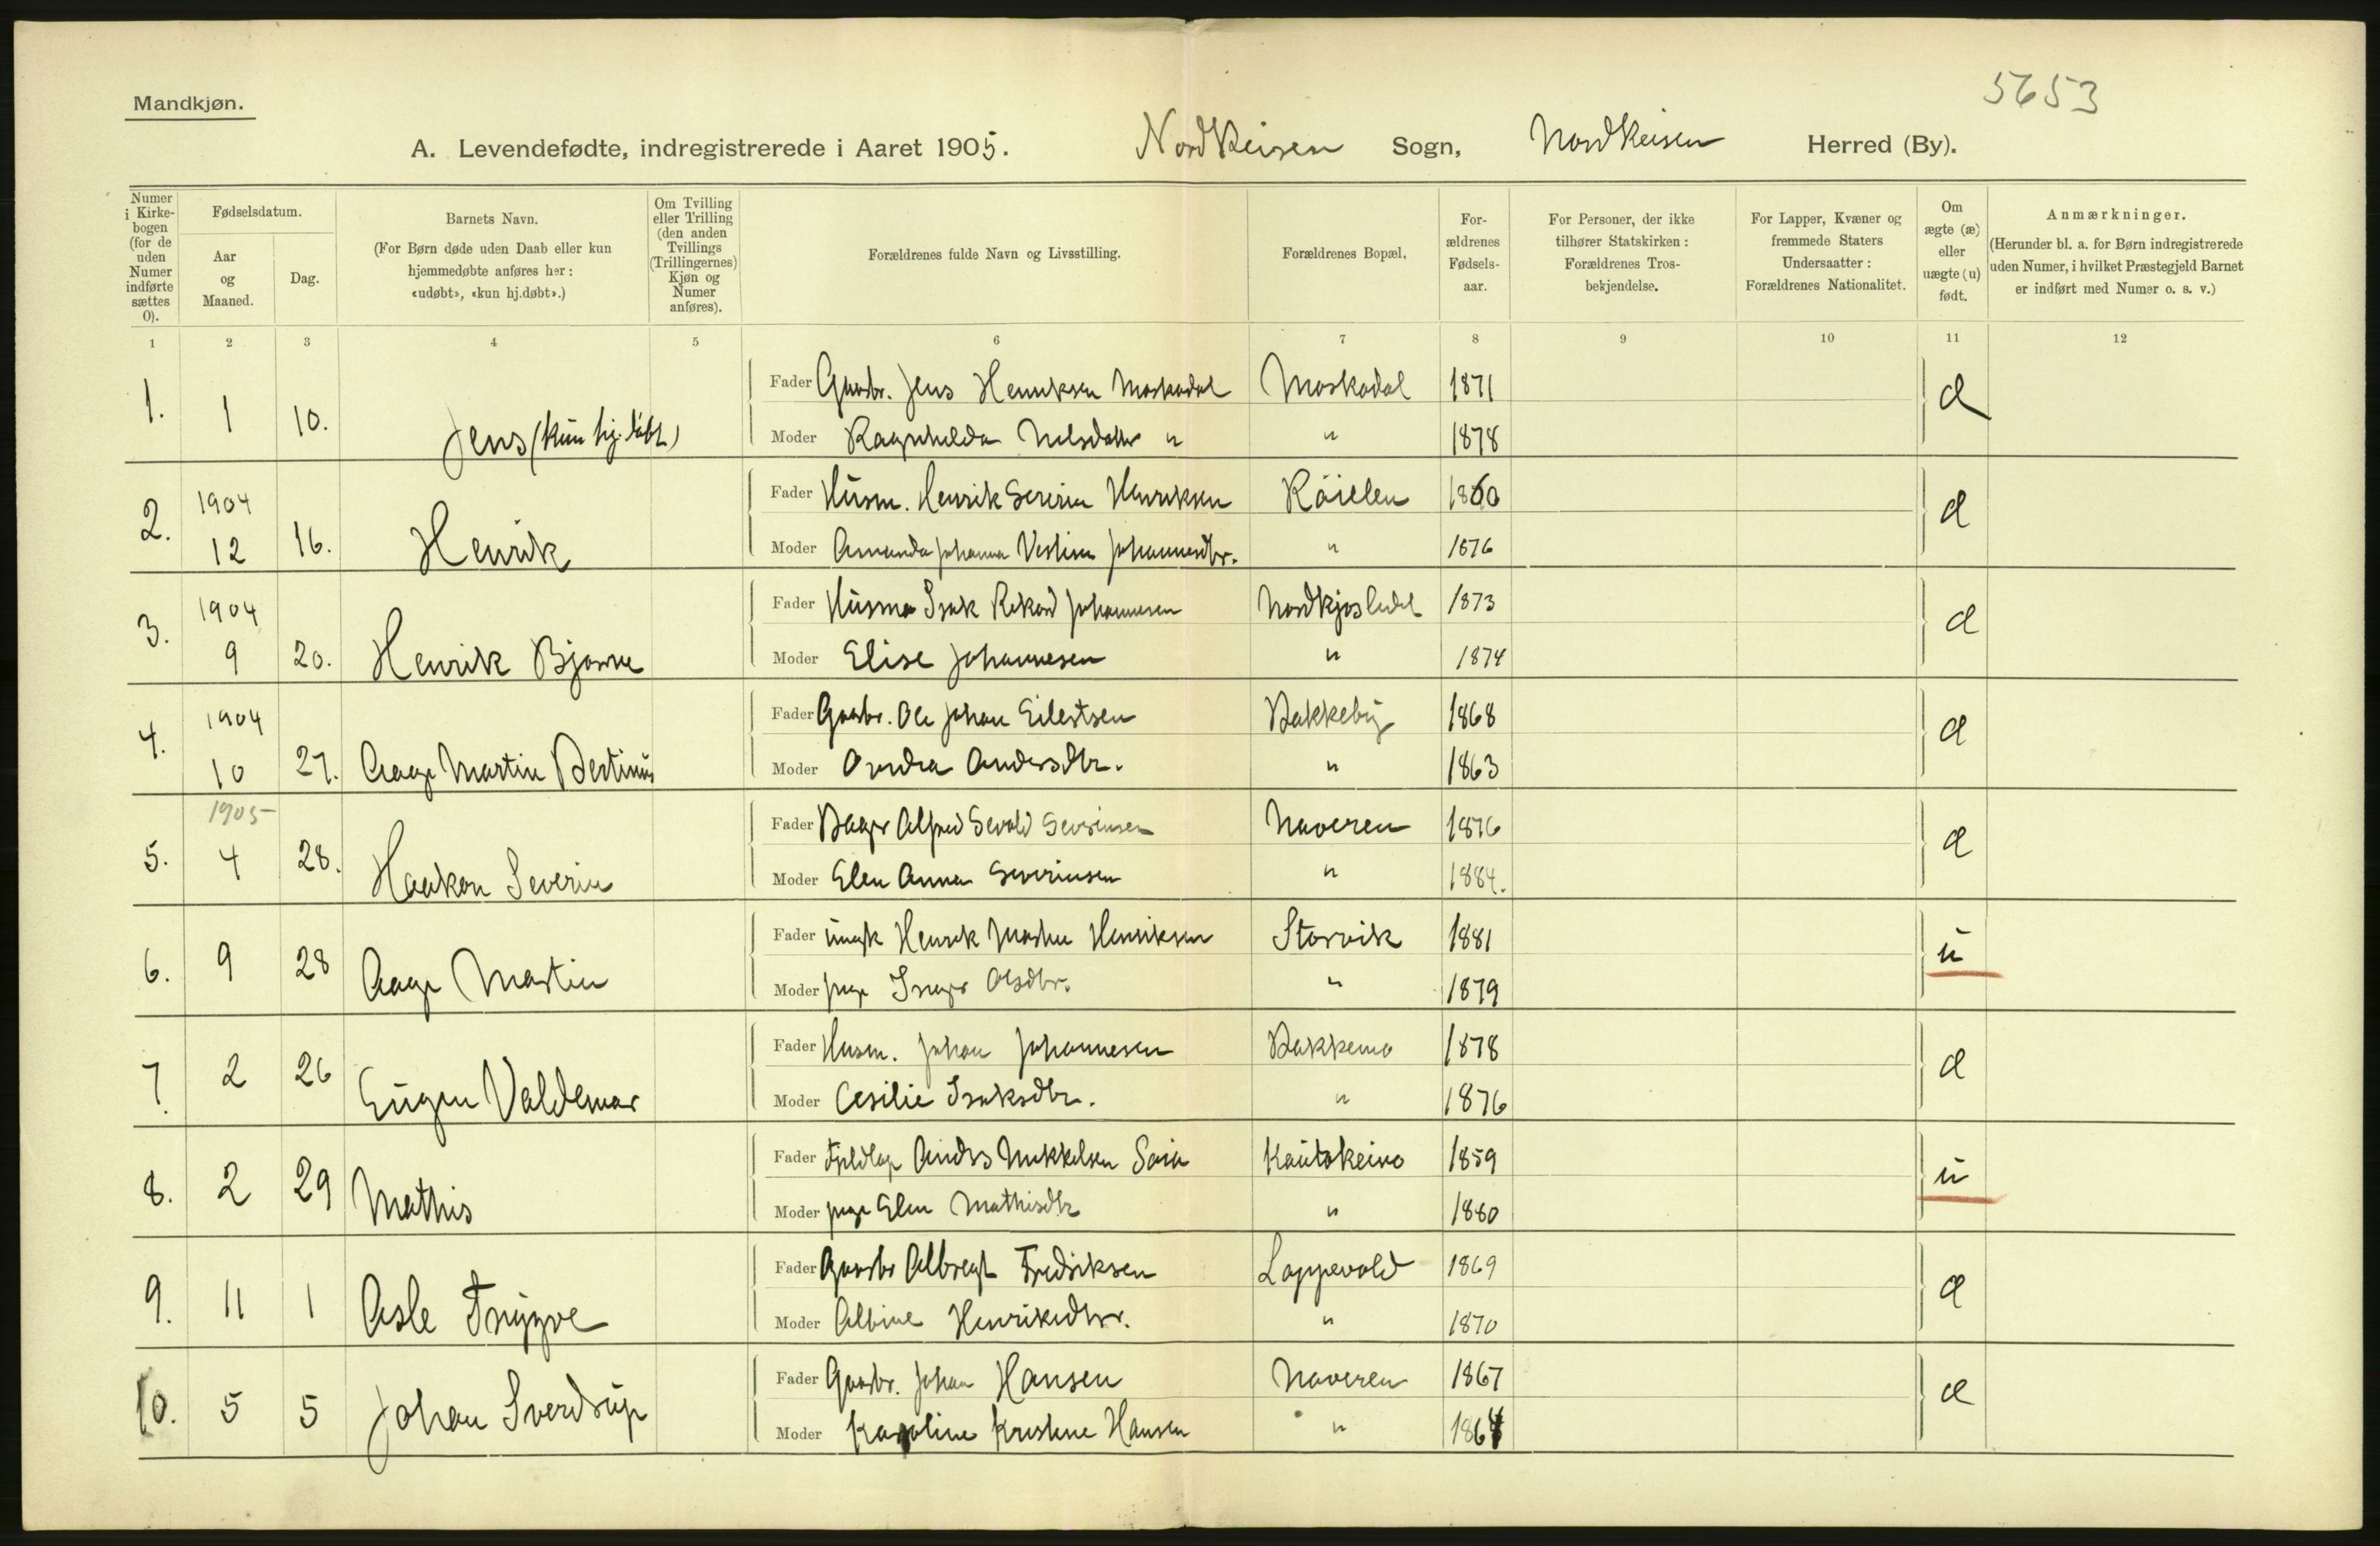 5653
Mandkjøn.
A. Levendefødte, indregistrerede i Aaret 1905. Nordreisen Sogn, Nordreisen Herred (By).
Numer i Kirkebogen (for de uden Numer indførte sættes 0).
Fødselsdatum.
Aar og Maaned.
Dag.
Barnets Navn.
(For Børn døde uden Daab eller kun hjemmedøbte anføres her: «udøbt», «kun hj.døbt».)
Om Tvilling eller Trilling (den anden Tvillings (Trillingernes) Kjøn og Numer anføres).
Forældrenes fulde Navn og Livsstilling.
Forældrenes Bopæl.
Forældrenes Fødselsaar.
For Personer, der ikke tilhører Statskirken: Forældrenes Trosbekjendelse.
For Lapper, Kvæner og fremmede Staters Undersaatter: Forældrenes Nationalitet.
Om ægte (æ) eller uægte (u) født.
Anmærkninger.
(Herunder bl. a. for Børn indregistrerede uden Numer, i hvilket Præstegjeld Barnet er indført med Numer o. s. v.)
1 2 3 4 5 6 7 8 9 10 11 12
1. 1 10. Jens (kun hj. døbt)
Fader Gaarbr. Jens Henriksen Moskodal Moskodal 1871 æ
Moder Ragnhilda Nilsdatter " " 1878
2. 1904 12 16. Henrik
Fader Husm. Henrik Severin Henriksen Röielen 1860 æ
Moder Amanda Johanna Johannesdtr. " 1876
3. 1904 9 20. Henrik Bjarne
Fader Husma Isak Rikard Johannesen 1873 æ
Moder Elise Johannesen " 1874
4. 1904 10 27. Aage Martin Bertinus
Fader Gaarbr. Ole Johan Eilertsen Bakkeby 1868 æ
Moder Andersdtr. " 1863
5. 1905 4 28. Haakon Severin
Fader Alfred Sevald Severinsen Naveren 1876 æ
Moder Elen Anna Severinsen " 1884.
6. 9 28 Aage Martin
Fader ungk Henrik Martin Henriksen Storvik 1881 u
Moder pige Inger Olsdtr. " 1879
7. 2 26 Eugen Valdemar
Fader Husm. Johan Johannesen Bakkemo 1878 æ
Moder Cesilie Isaksdtr. " 1876
8. 2 29 Mathis
Fader Fjeldlap Anders Mikkelsen Sara Kautokeino 1859 u
Moder pige Elen Mathisdtr " 1880
9. 11 1 Asle Trygve
Fader Gaarbr Albregt Fredriksen Loppevold 1869 æ
Moder Albine Henriksdtr. " 1870
10. 5 5 Johan Sverdrup
Fader Gaarbr. Johan Hansen Naveren 1867 æ
Moder Karoline Kristine Hansen " 1864